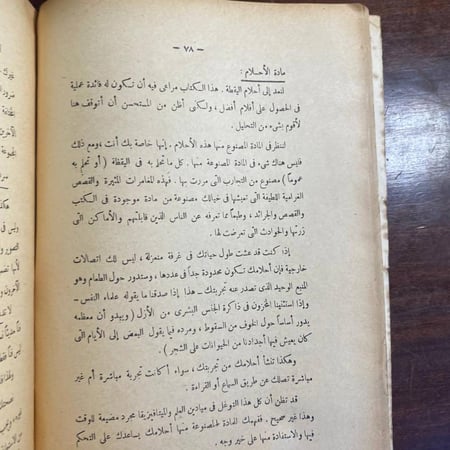 — ٧٨ —
مادة الأحلام :
لنعد إلى أحلام اليقظة . هذا الكتاب مراعى فيه أن تكون له فائدة عملية
فى الحصول على أفلام أفضل ، ولكنى أظن من المستحسن أن أتوقف هنا
لأقوم بشىء من التحليل .
لننظر فى المادة المصنوع منها هذه الأحلام . إنها خاصة بك أنت ، ومع ذلك
فليس هناك شىء فى المادة المصنوعة منها . كل ما تحلم به فى اليقظة ( أو تحلم به
عموماً ) مصنوع من التجارب التى مررت بها . فهذه المغامرات المثيرة والقصص
الغرامية اللطيفة التى تعيشها فى خيالك مصنوعة من مادة موجودة فى الكتب
والقصص والجرائد ، وطبعاً مما تعرفه عن الناس الذين قابلتهم والأماكن التى
زرتها والحوادث التى تعرضت لها .
إذا كنت قد عشت طول حياتك فى غرفة منعزلة ، ليس لك اتصالات
خارجية فإن أحلامك تكون محدودة جداً فى عددها ، وستدور حول الطعام وهو
المنبع الوحيد الذى تصدر عنه تجربتك – هذا إذا صدقنا ما يقوله علماء النفس –
وإذا استثنينا المخزون فى ذاكرة الجنس البشرى من الأزل ( ويبدو أن معظمه
يدور أساساً حول الخوف من السقوط ، ومرده فيما يقول البعض إلى الأيام التى
كان يعيش فيها أجدادنا من الحيوانات على الشجر ) .
وهكذا تنشأ أحلامك من تجربتك ، سواء أكانت تجربة مباشرة أم غير
مباشرة تصلك عن طريق السماع أو القراءة .
قد تظن أن كل هذا التوغل فى ميادين العلم والميتافيزيقا مجرد مضيعة للوقت
وهذا غير صحيح . ففهمك للمادة المصنوعة منها أحلامك يساعدك على التحكم
فيها والاستفادة منها على خير وجه .